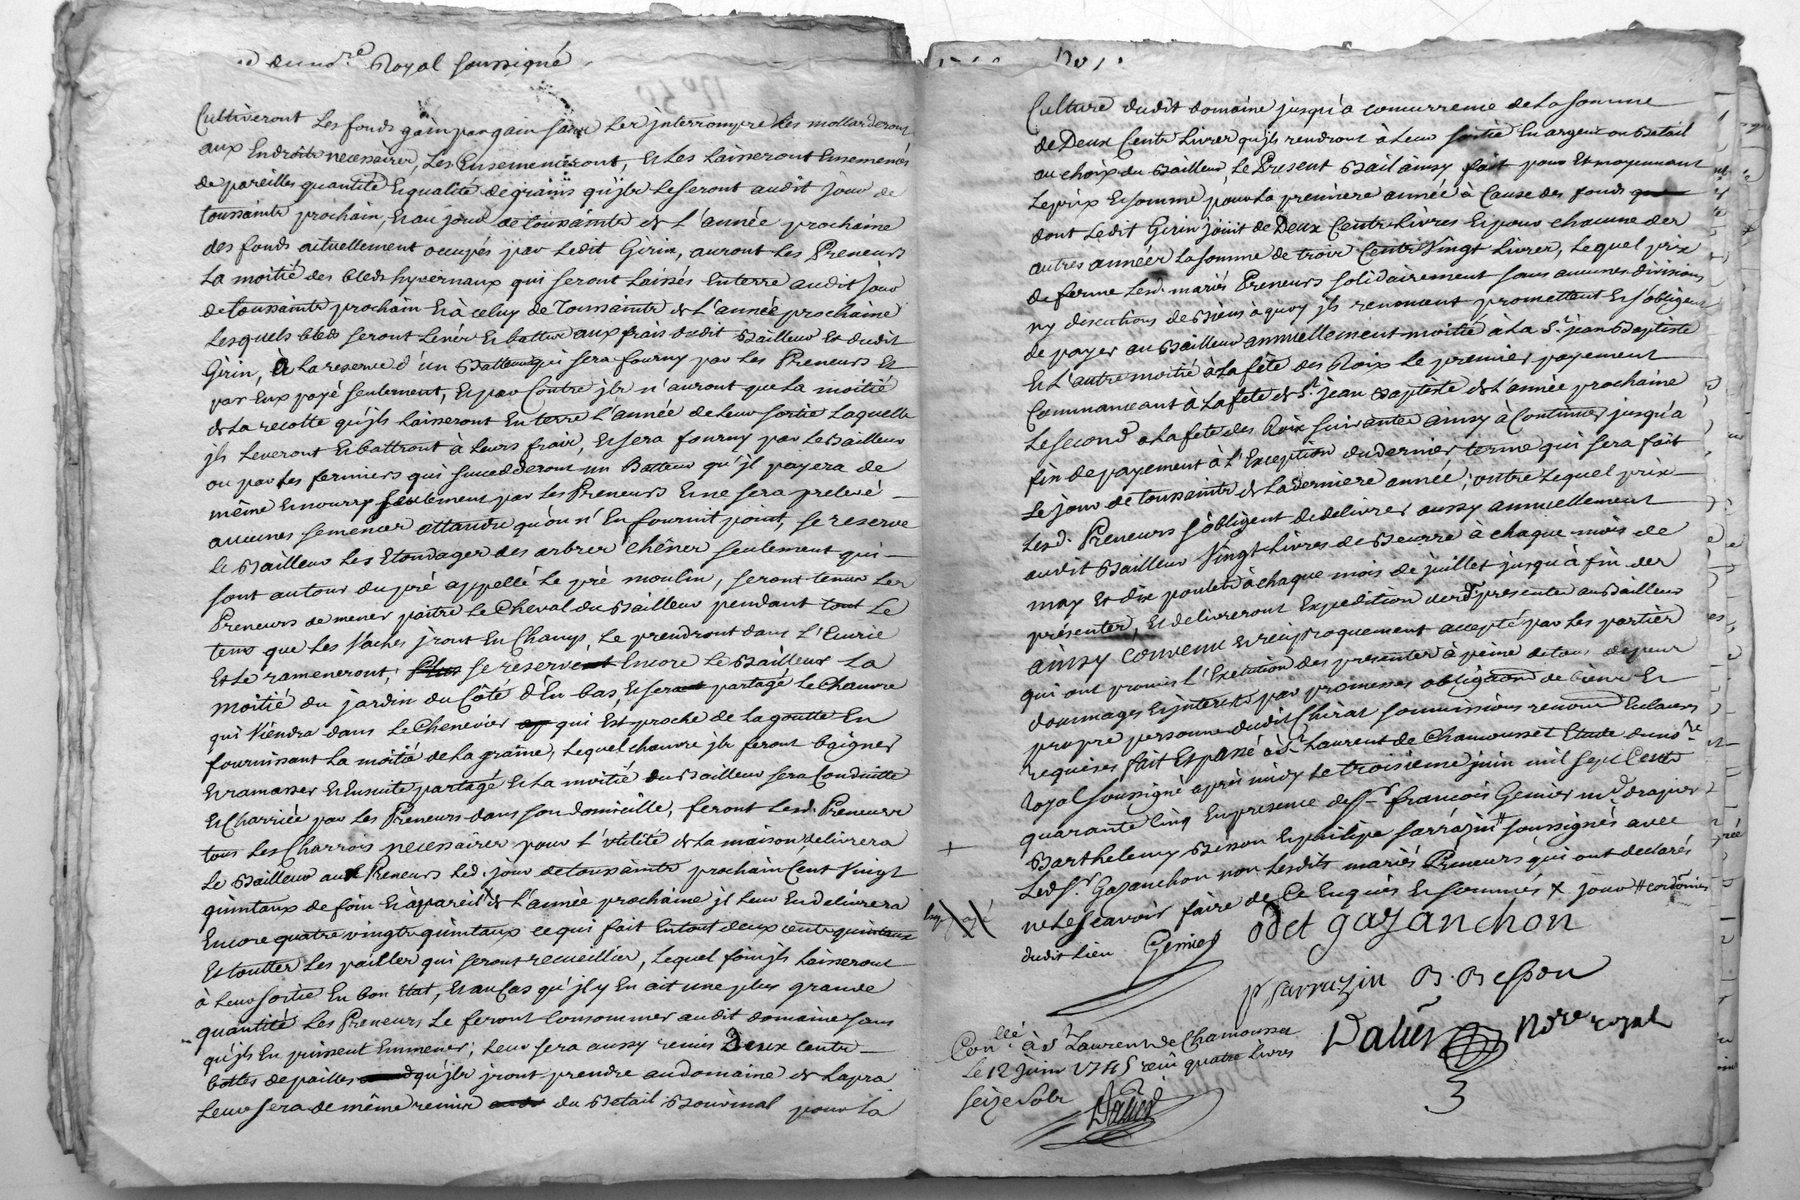 du no.re Royal soussigné
Cultiveront les fonds gain par gain sans les jnterrompre les mollarderont
aux Endroits necessaires, les Ensemenceront, Et les laisseront Ensemencés
de pareilles quantité Et qualité de grains qu'jls le seront audit jour de
toussaints prochain, Et au jour de toussaints de L'année prochaine
des fonds actuellement occupés par ledit Girin, auront les Preneurs
La moitié des bleds hyvernaux qui seront laissés En terre audit jour
de toussaints prochain Et à celuy de Toussaints de L'année prochaine
Lesquels bleds seront levés Et battus aux frais dudit Bailleur Et dudit
Girin, à la reserve d'un Batteur qui sera fourny par les Preneurs Et
par Eux payé seulement, Et par Contre jls n'auront que la moitié
de la recolte qu'jls laisseront En terre L'année de leur sortie Laquelle
jls leveront Et battront à leurs frais, Et sera fourny par le Bailleur
ou par les fermiers qui succedderont un Batteur qu'jl payera de
même Et nourry seulement par les Preneurs Et ne sera prelevé
aucunes semences attandu qu'on n'En fournit point, se reserve
le Bailleur les Etondages des arbres chênes seulement qui
sont autour du pré appellé le pré moulin, seront tenus les
Preneurs de mener paitre le Cheval du Bailleur pendant tout le
tems que les Vaches jront En Champ, le prendront dans l'Ecurie
Et le rameneront, se reserve Encore le Bailleur La
moitié du jardin du Côté d'En bas, Et sera partagé le Chanvre
qui Viendra dans le Chenevier qui Est proche de la goutte En
fournissant La moitié de la graine, lequel chanvre jls feront baigner
Et ramasser Et Ensuite partagé Et la moitié du Bailleur sera Conduitte
Et Charriée par les Preneurs dans son domicille, feront lesd. Preneurs
tous les Charrois necessaires pour l'utilité de la maison delivrera
le Bailleur aux Preneurs led. jour de toussaints prochain Cent Vingt
quintaux de foin Et à pareil de L'année prochaine jl leur En delivrera
Encore quatre vingts quintaux ce qui fait En tout deux cents quintaux
Et touttes les pailles qui seront recueillies, lequel foin jls laisseront
à leur sortie En bon Etat, Et au Cas qu'jl y En ait une plus grande
quantité les Preneurs le feront Consommer audit domaine sans
qu'jls En puissent Emmener, leur sera aussy remis Deux Cents
bottes de pailles qu'jls jront prendre au domaine de Lapra
leur sera de même remis du Betail Bourinal pour la
Culture dudit domaine jusqu'à concurrence de la somme
de Deux Cents Livres qu'jls rendront à leur sortie En argent ou Betail
au choix du Bailleur, le Present Bail ainsy fait pour Et moyennant
le prix Et somme pour la premiere année à Cause des fonds
dont ledit Girin jouit de Deux Cents Livres Et pour chacune des
autres années la somme de trois Cents Vingt Livres, lequel prix
de ferme lesd. mariés Preneurs solidairement sans aucunes divisions
ny discutions de Biens à quoy jls renoncent promettent Et s'obligent
de payer au Bailleur annuellement moitié à la St. jean Baptiste
Et l'autre moitié à la fête des Roix le premier payement
Commançant à la fête de St. jean Baptiste de L'année prochaine
le second a la fete des Roix suivante ainsy à Continuer jusqu'à
fin de payement à l'Exception du dernier terme qui sera fait
le jour de toussaints de la derniere année, outre lequel prix
lesd. Preneurs s'obligent de delivrer aussy annuellement
audit Bailleur Vingt Livres de Beurre à chaque mois de
may Et dix poulets à chaque mois de juillet jusqu'à fin des
présentes, Et delivreront Expedition des presentes au Bailleur
ainsy convenu Et reciproquement accepté par les parties
qui ont promis l'Execution des presentes à peine de tous depens
dommages Et jnterets par promesses obligaons de biens Et
propre personne dudit Chirat soumissions renon.ons Et clauses
requises fait Et passé à St. Laurent de Chamousset Etude du no.re
Royal soussigné après midy le troisieme juin mil sept Cents
quarante Cinq En presence de sr. françois Genier md. drapier
Barthelemy Bisson Et philipe sarrazin # soussignés avec
led. sr. Gazanchon non lesdits mariés Preneurs qui ont declarés
ne le sçavoir faire de Ce Enquis Et sommés x jour # cordonnier
dudit Lieu Genier odet gazanchon
+
P sarrazin B. Besson
Dalier No.re royal
3
Con.llé à St Laurent de Chamousset
le 12 juin 1745 reçu quatre livres
seize sols
Dalier